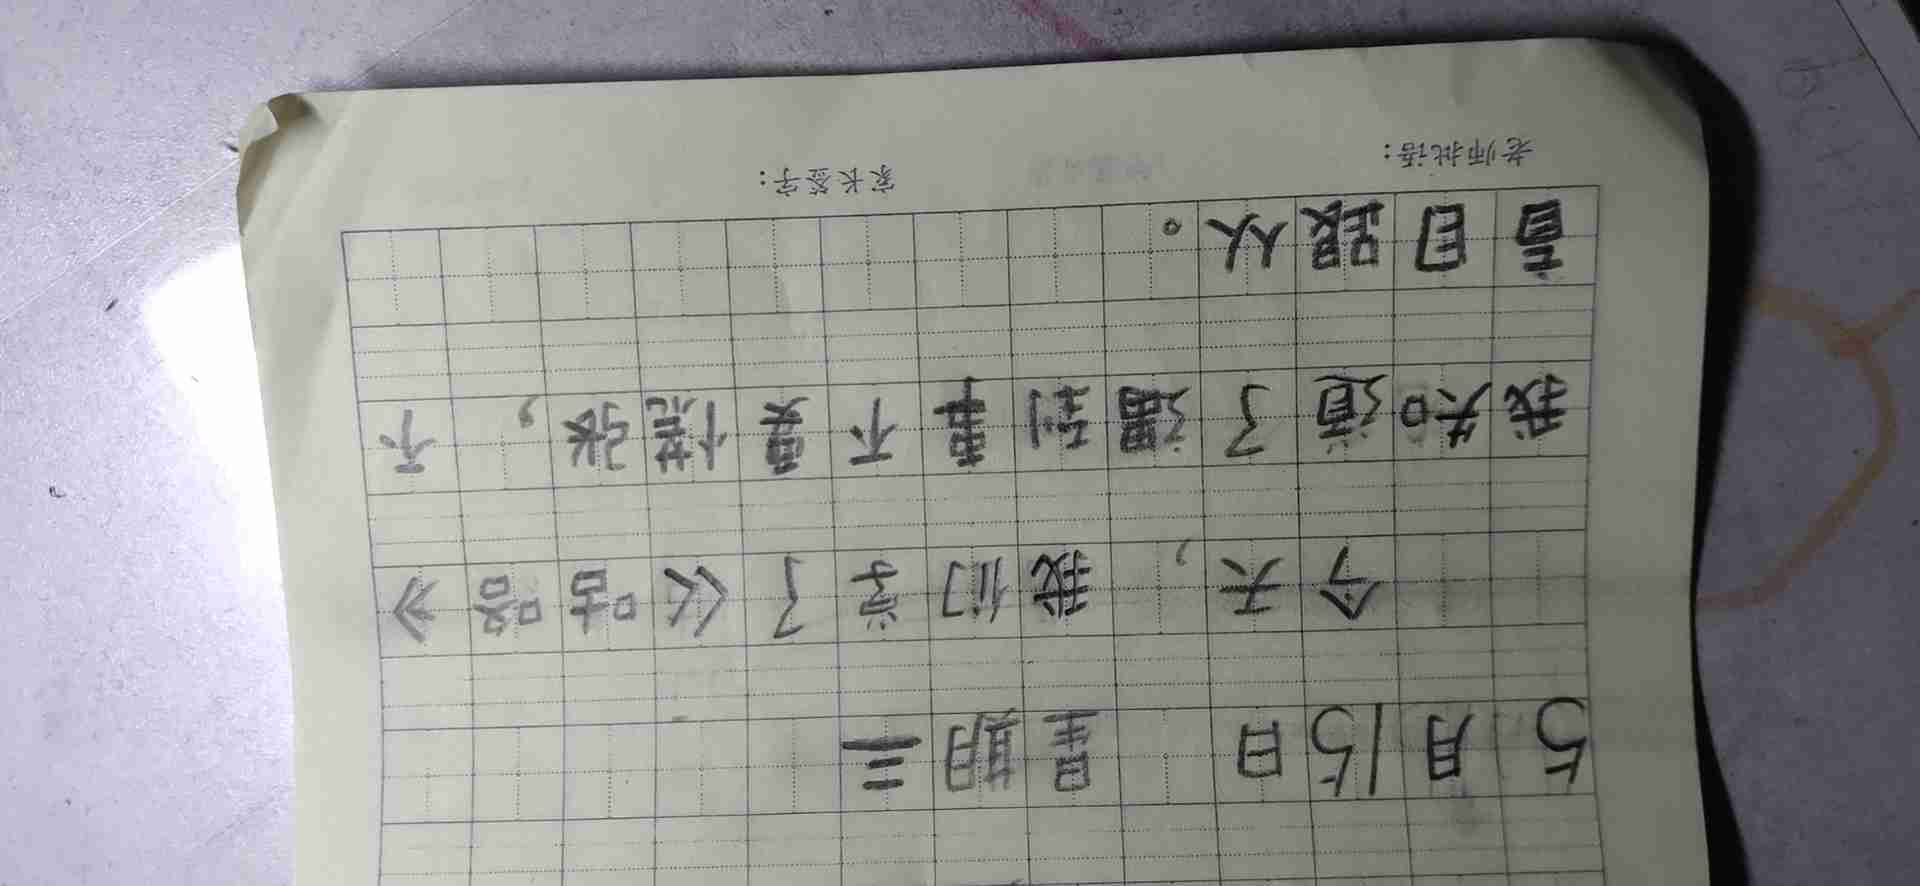 5月15日 星期三
今天，我们学了《咕咚》
我知道了遇到事不要慌张，不
盲目跟从。
家长签字：
老师批语：